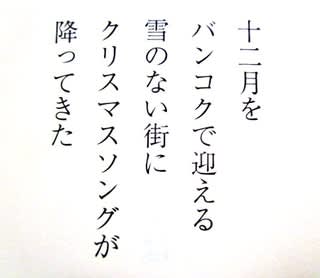 十二月を
バンコクで迎える
雪のない街に
クリスマスソングが
降ってきた